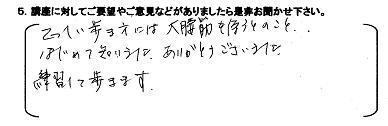 5. 講座に対してご要望やご意見などがありましたら是非お聞かせ下さい。
歩き方には大腰筋を使うとのこと、、
はじめて知りました。ありがとうございました
練習して歩きます。